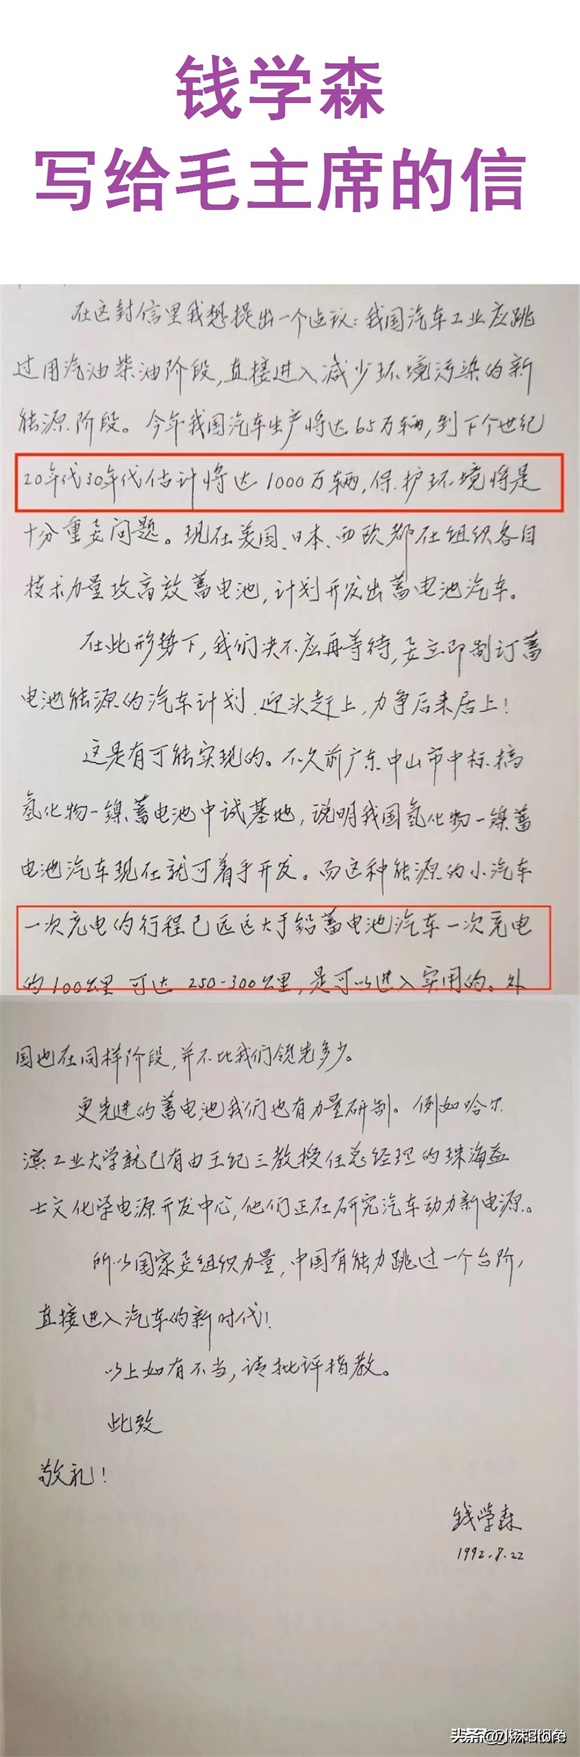 钱学森
写给毛主席的信
在这封信里我想提出一个建议：我国汽车工业应跳
过用汽油柴油阶段，直接进入减少环境污染的新
能源阶段。今年我国汽车生产将达65万辆，到下个世纪
20年代30年代估计将达1000万辆，保护环境将是
十分重要问题。现在美国、日本、西欧都在组织各自
技术力量攻高效蓄电池，计划开发出蓄电池汽车。
在此形势下，我们决不应再等待，要立即制订蓄
电池能源的汽车计划，迎头赶上，力争后来居上！
这是有可能实现的。不久前广东中山市中标搞
氢化物—镍蓄电池中试基地，说明我国氢化物—镍蓄
电池汽车现在就可着手开发。而这种能源的小汽车
一次充电的行程已远远大于铅蓄电池汽车一次充电
的100公里，可达250-300公里，是可以进入实用的。外
国也在同样阶段，并不比我们领先多少。
更先进的蓄电池我们也有力量研制。例如哈尔
滨工业大学就已有由王纪三教授任总经理的珠海益
士文化学电源开发中心，他们正在研究汽车动力新电源。
所以国家要组织力量，中国有能力跳过一个台阶，
直接进入汽车的新时代！
以上如有不当，请批评指教。
此致
敬礼！
钱学森
1992.8.22
头条